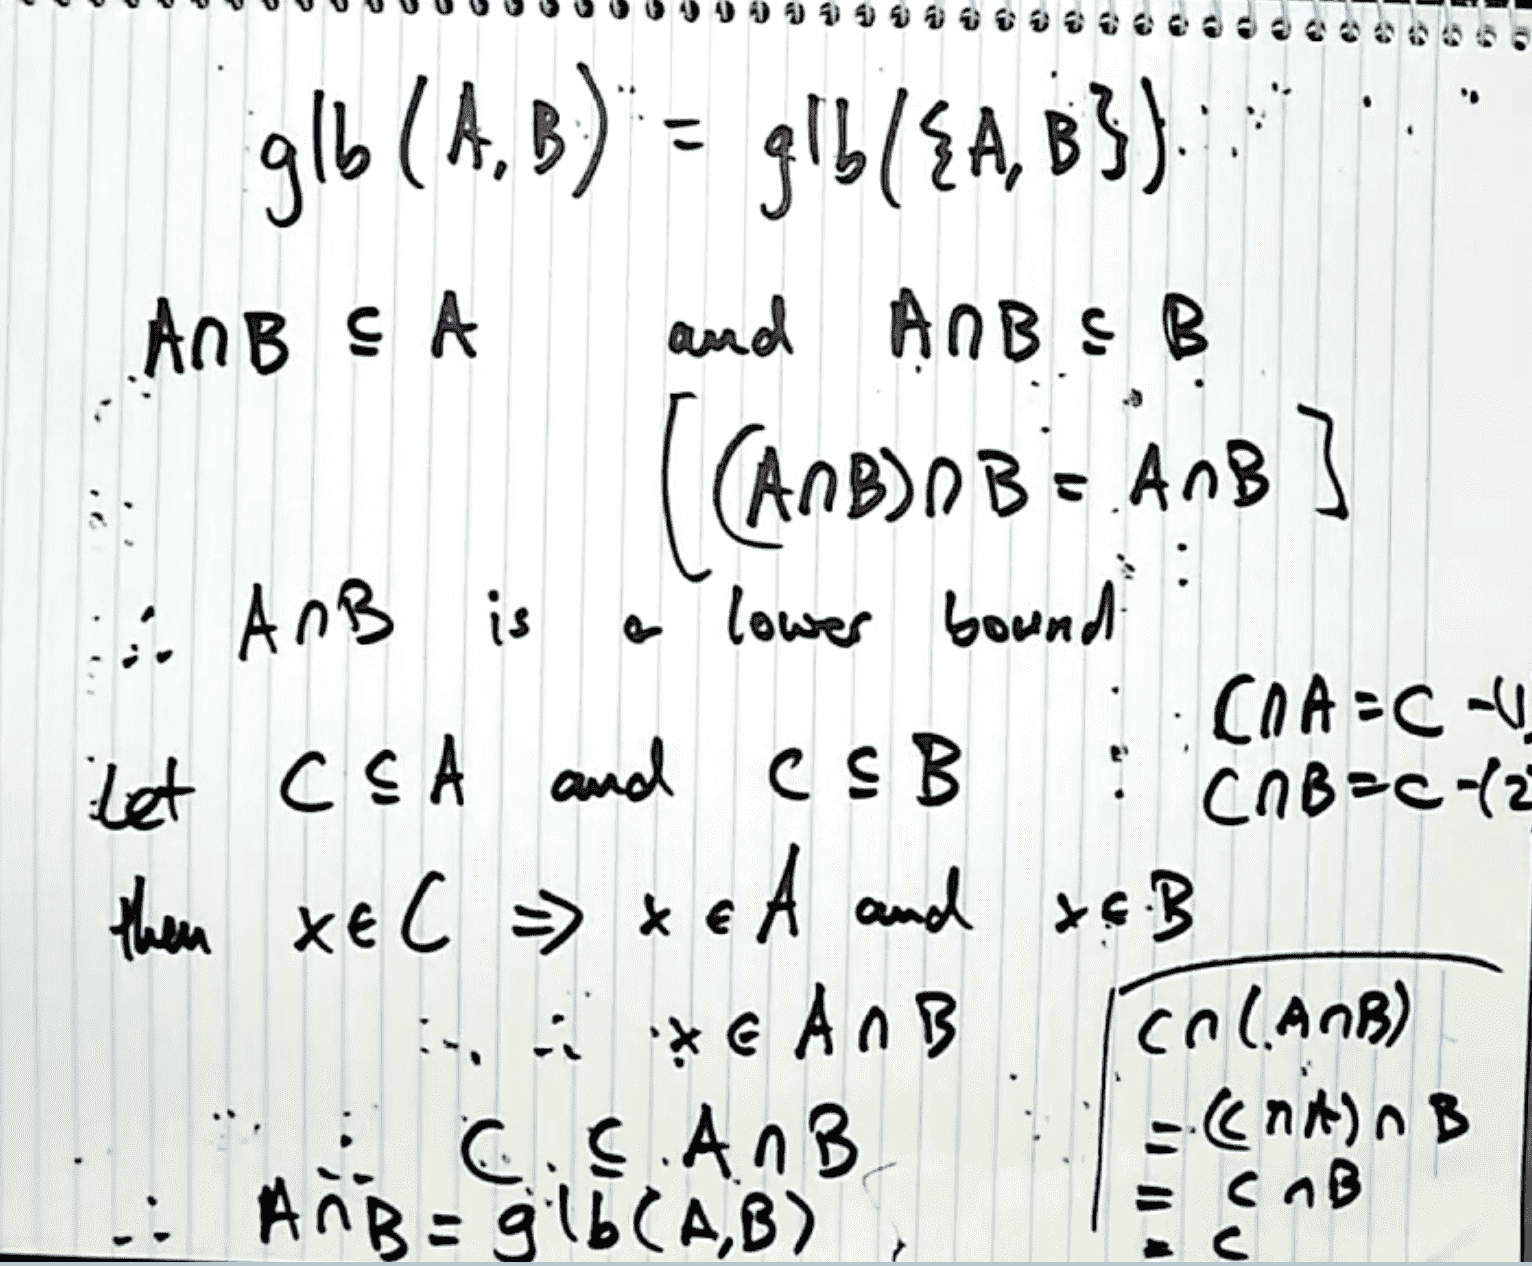 glb (A, B) = glb({A, B})
A∩B ⊆ A and A∩B ⊆ B
[(A∩B)∩B = A∩B]
∴ A∩B is a lower bound
C∩A = C -(1)
Let C ⊆ A and C ⊆ B
C∩B = C -(2)
then x ∈ C ⇒ x ∈ A and x ∈ B
∴ x ∈ A∩B
∴ C ⊆ A∩B
∴ A∩B = glb(A,B)
C∩(A∩B)
= (C∩A)∩B
= C∩B
= C